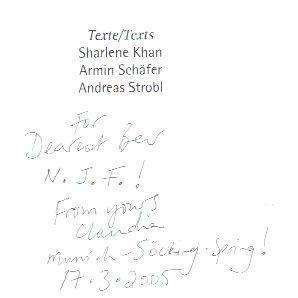 Texte/Texts
Sharlene Khan
Armin Schäfer
Andreas Strobl
For
Dearest
N. J. F. !
From yours
Claudia
Munich - Söcking - Spring!
17.3.2005